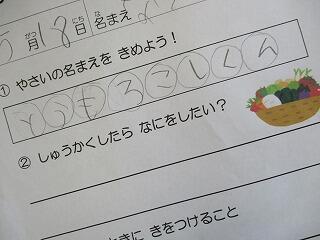 5月18日 名まえ
がつ にち な
① やさいの名まえを きめよう！
とうもろこしくん
② しゅうかくしたら なにをしたい？
ときに きをつけること